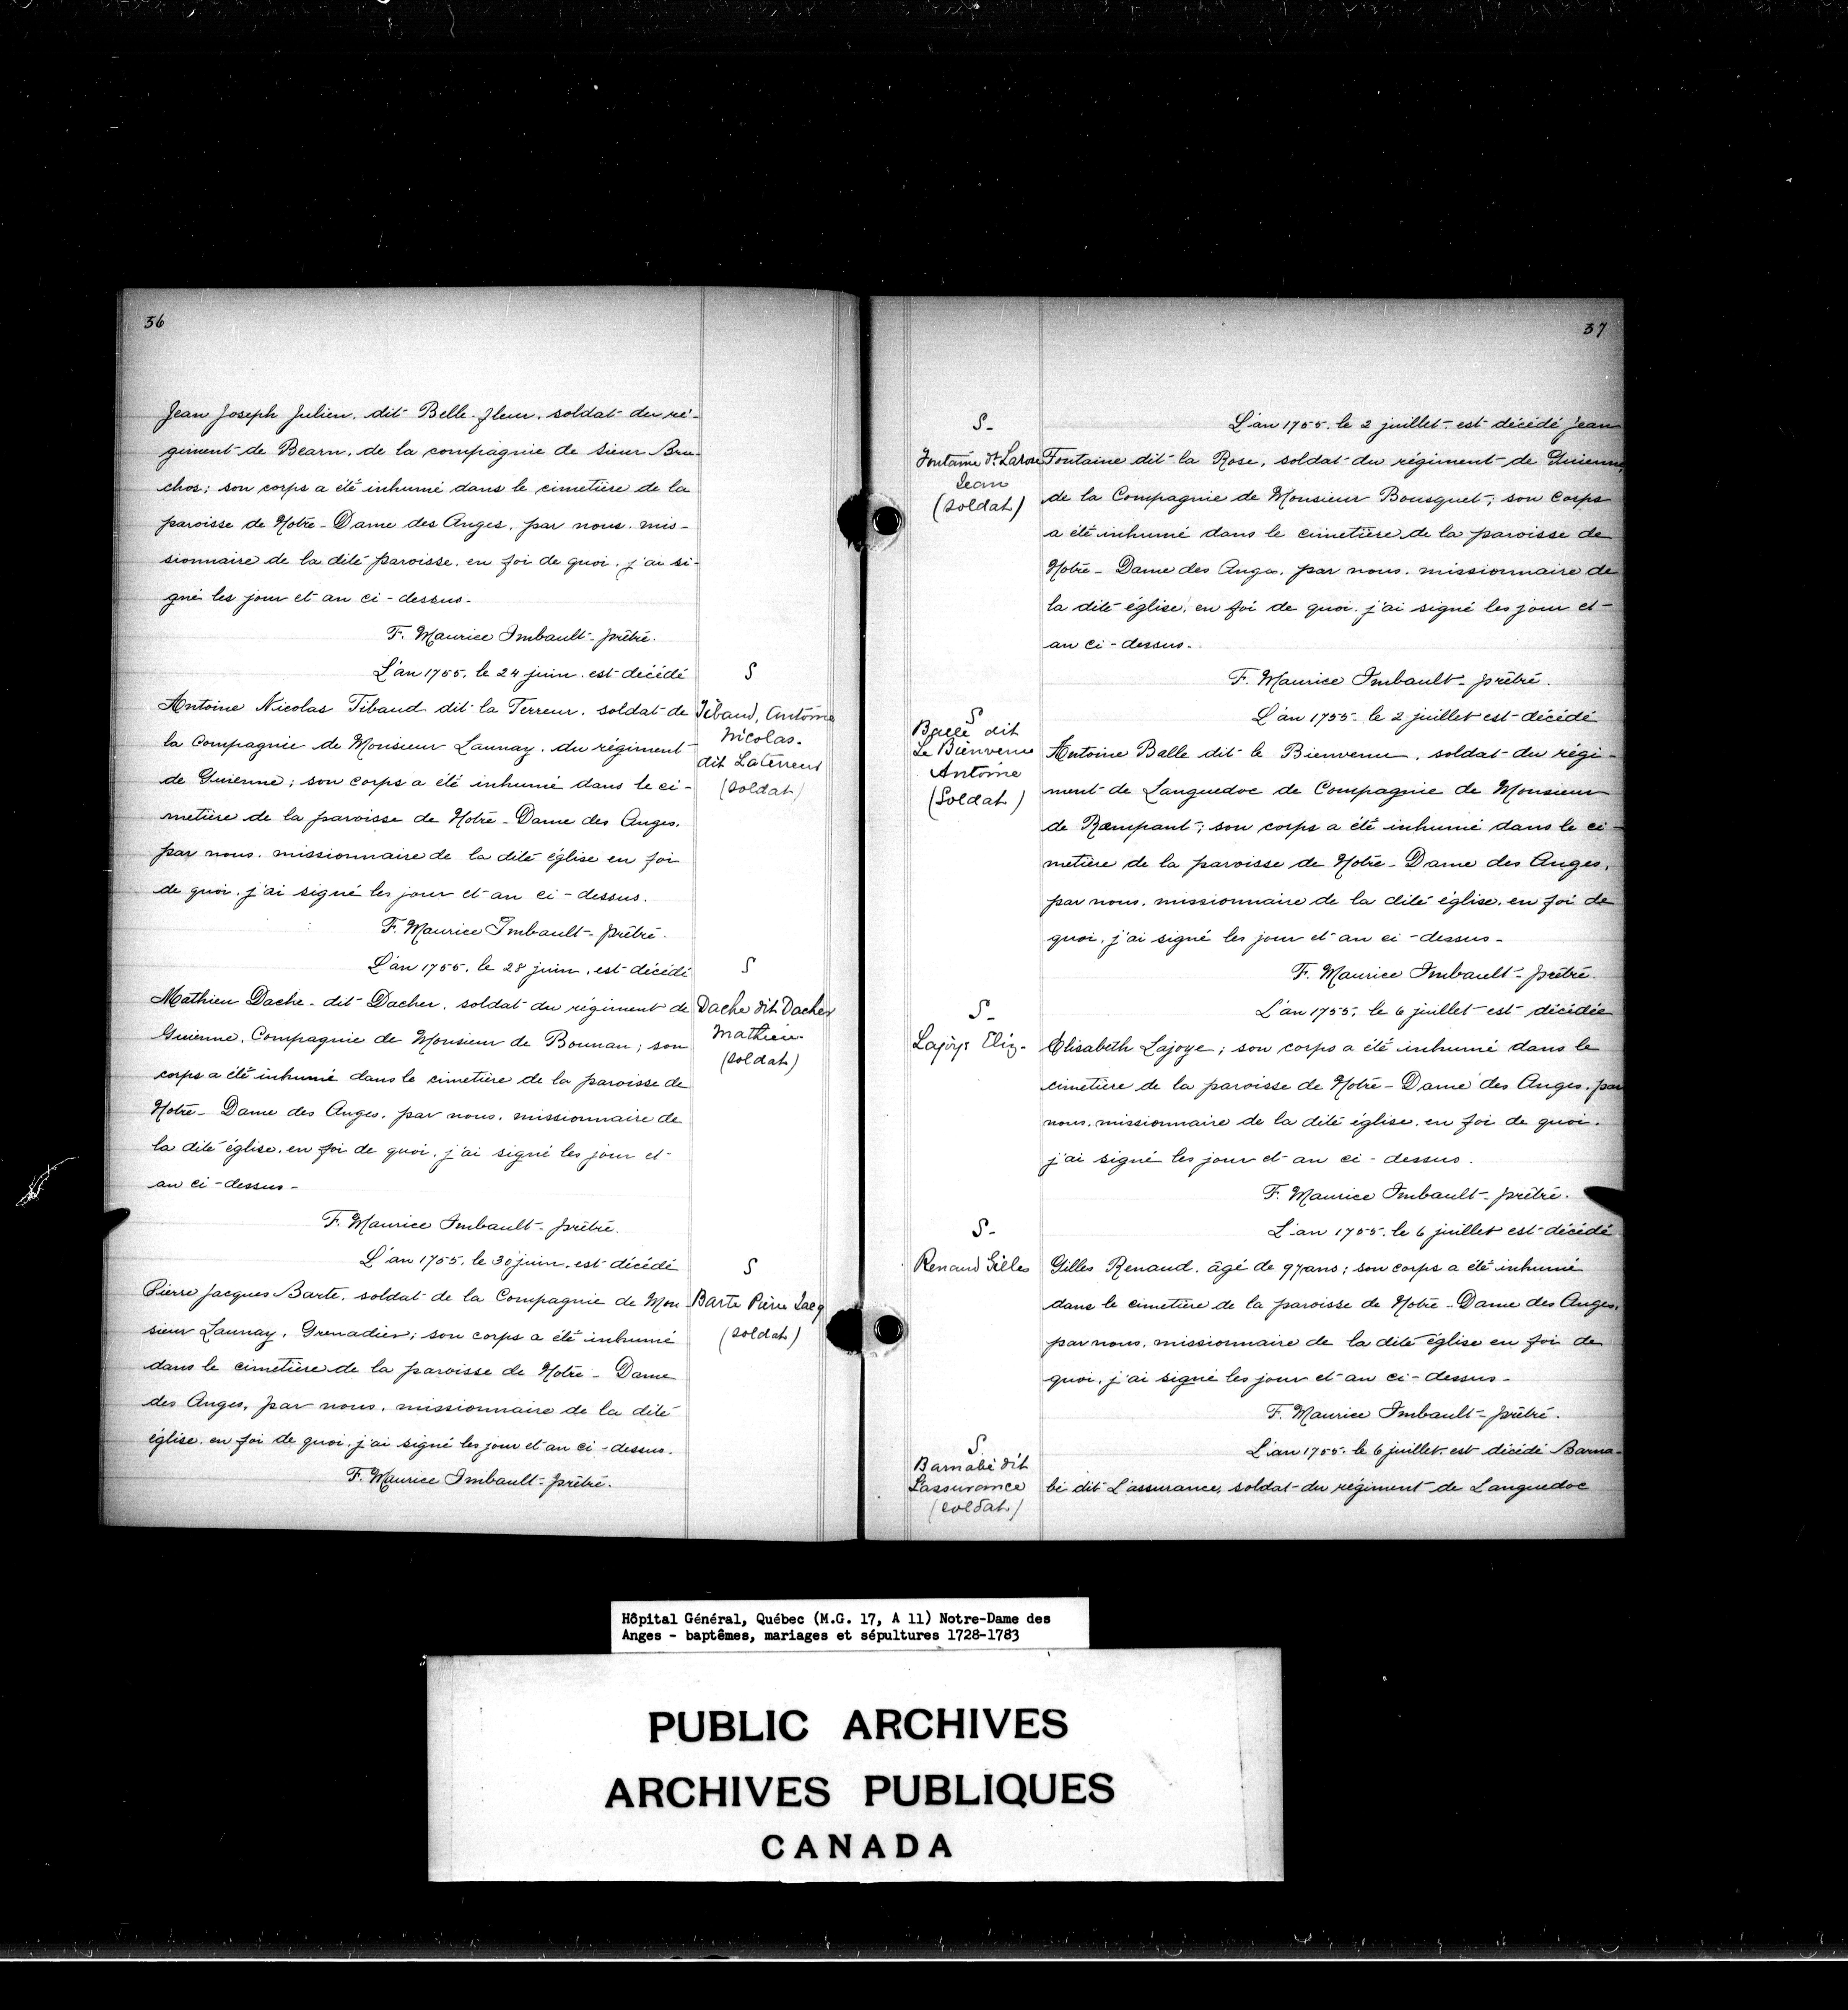 36
Jean Joseph Julien, dit Belle-fleur, soldat du ré-
giment de Bearn, de la compagnie de sieur Bru-
chos; son corps a été inhumé dans le cimetière de la
paroisse de Notre-Dame des Anges, par nous, mis-
sionnaire de la dite paroisse, en foi de quoi, j'ai si-
gné les jour et an ci-dessus-
F. Maurice Imbault- prêtre.
L'an 1755, le 24 juin, est décédé
S
Antoine Nicolas Tibaud dit la Terreur, soldat de
la Compagnie de Monsieur Launay, du régiment
de Guienne; son corps a été inhumé dans le ci-
metière de la paroisse de Notre-Dame des Anges,
par nous, missionnaire de la dite église en foi
de quoi, j'ai signé les jour et an ci-dessus.
Tibaud, Antoine
Nicolas-
dit Laterreur
(soldat)
F. Maurice Imbault- prêtre.
L'an 1755, le 28 juin, est décédé
S
Mathieu Dache- dit Dacher, soldat du régiment de
Guienne, Compagnie de Monsieur de Bounan; son
corps a été inhumé dans le cimetière de la paroisse de
Notre-Dame des Anges, par nous, missionnaire de
la dite église, en foi de quoi, j'ai signé les jour et
an ci-dessus-
Dache dit Dacher
Mathieu-
(soldat)
F. Maurice Imbault- prêtre.
L'an 1755, le 30 juin, est décédé
S
Pierre Jacques Barte, soldat de la Compagnie de Mon-
sieur Launay, Grenadier; son corps a été inhumé
dans le cimetière de la paroisse de Notre-Dame
des Anges, par nous, missionnaire de la dite
église, en foi de quoi, j'ai signé les jour et an ci-dessus.
Barte Pierre Jacq
(soldat)
F. Maurice Imbault- prêtre.
37
L'an 1755, le 2 juillet, est décédé Jean
S-
Fontaine dt Larose
Jean
(soldat)
Fontaine dit la Rose, soldat du régiment de Guienne,
de la Compagnie de Monsieur Bousquet; son corps
a été inhumé dans le cimetière de la paroisse de
Notre-Dame des Anges, par nous, missionnaire de
la dite église, en foi de quoi, j'ai signé les jour et
an ci-dessus-
F. Maurice Imbault- prêtre.
L'an 1755, le 2 juillet est décédé
S
Balle dit
Le Bienvenu
Antoine
(Soldat)
Antoine Balle dit le Bienvenu, soldat du régi-
ment de Languedoc de Compagnie de Monsieur
de Rampant; son corps a été inhumé dans le ci-
metière de la paroisse de Notre-Dame des Anges,
par nous, missionnaire de la dite église, en foi de
quoi, j'ai signé les jour et an ci-dessus-
F. Maurice Imbault- prêtre.
L'an 1755, le 6 juillet est décédée
S-
Lajoye Eliz-
Elisabeth Lajoye; son corps a été inhumé dans le
cimetière de la paroisse de Notre-Dame des Anges, par
nous, missionnaire de la dite église, en foi de quoi,
j'ai signé les jour et an ci-dessus.
F. Maurice Imbault- prêtre.
L'an 1755, le 6 juillet est décédé
S-
Renaud Gilles
Gilles Renaud, âgé de 97 ans; son corps a été inhumé
dans le cimetière de la paroisse de Notre-Dame des Anges,
par nous, missionnaire de la dite église en foi de
quoi, j'ai signé les jour et an ci-dessus-
F. Maurice Imbault- prêtre.
L'an 1755, le 6 juillet est décédé Barna-
S
Barnabé dit
L'assurance
(soldat)
bé dit L'assurance, soldat du régiment de Languedoc
Hôpital Général, Québec (M.G. 17, A 11) Notre-Dame des
Anges - baptêmes, mariages et sépultures 1728-1783
PUBLIC ARCHIVES
ARCHIVES PUBLIQUES
CANADA